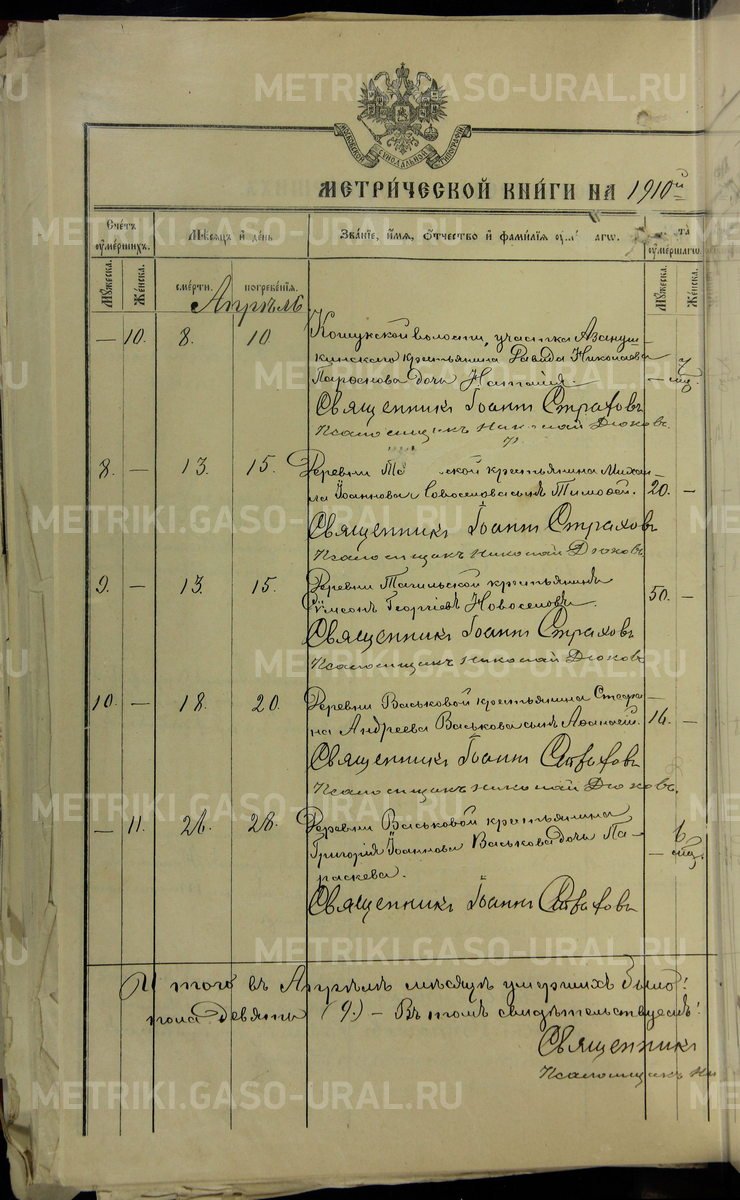 METRIKI.GASO-URAL.RU
МОСКОВСКОЙ СѴНОДАЛЬНОЙ ТИПОГРАФІИ
МЕТРИ́ЧЕСКОЙ КНИ́ГИ НА 1910й
Счетъ ᲂумершихъ.
Мѣсяцъ и день
Званіе, имя, отчество и фамилія ᲂум аго.
та ᲂумершагѡ.
Мꙋжеска. Женска.
смерти. погребенія.
Мꙋжеска. Женска.
Апрѣль
— 10. 8. 10. Кошукской волости, участка Азануш-
кинскаго крестьянина Николаева
Парѳенова дочь Наталія. — мѣс.
Священникъ Іоаннъ Страховъ
Псаломщикъ Николай Дюковъ.
8. — 13. 15. Деревни ской крестьянина Михаи-
ла Іоаннова Новоселова сынъ Тимоѳей. 20. —
Священникъ Іоаннъ Страховъ
Псаломщикъ Николай Дюковъ
9. — 13. 15. Деревни Тагильской крестьянинъ
Сѵмеонъ Георгіевъ Новоселовъ. 50. —
Священникъ Іоаннъ Страховъ
Псаломщикъ Николай Дюковъ
10. — 18. 20. Деревни Васьковой крестьянина Стефа-
на Андреева Васькова сынъ Аѳанасій. —
Священникъ Іоаннъ Страховъ
Псаломщикъ Николай Дюковъ.
— 11. 26. 28. Деревни Васьковой крестьянина
Григорія Іоаннова Васькова дочь Па-
раскева. — мѣс.
Священникъ Іоаннъ Страховъ
Итого въ Апрѣлѣ мѣсяцѣ умершихъ было:
пола девять (9.) — Въ томъ свидѣтельствуемъ:
Священникъ
Псаломщикъ Ни